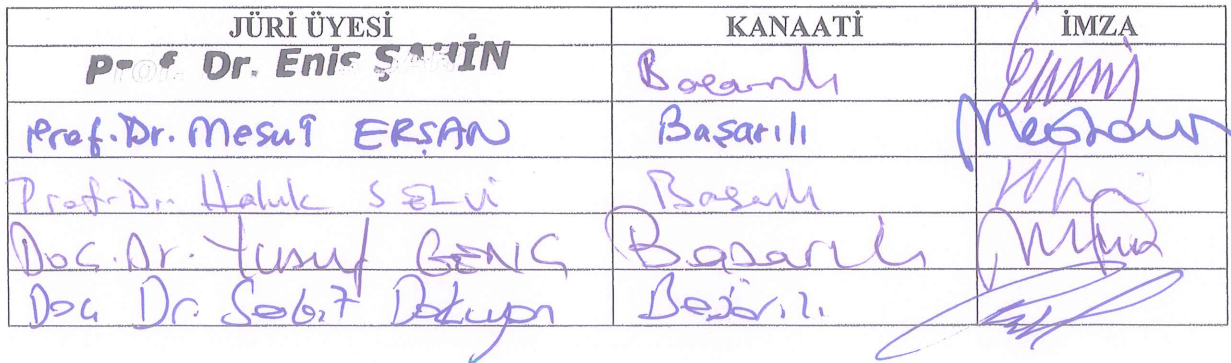 JÜRİ ÜYESİ KANAATİ İMZA
Prof. Dr. Enis ŞAHİN Başarılı
Prof. Dr. Mesut ERŞAN Başarılı
Prof. Dr. Haluk SELVİ Başarılı
Doç. Dr. Yusuf GENÇ Başarılı
Doç Dr. Sabit Dokuyan Başarılı